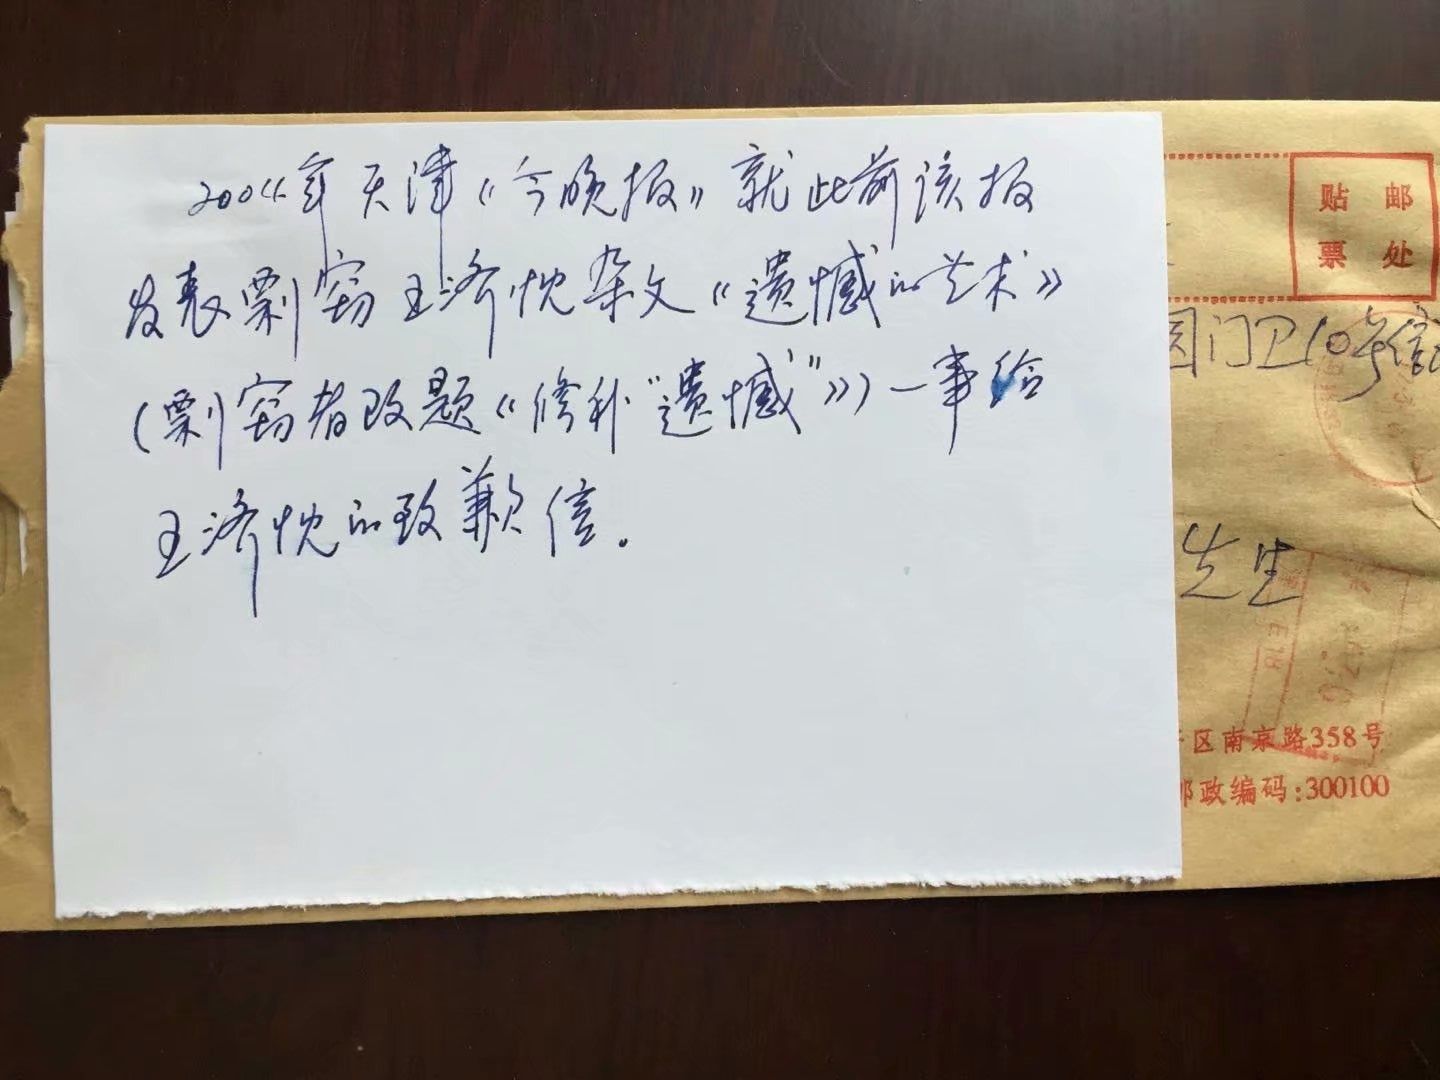 2004年天津《今晚报》就此前该报
发表剽窃王济忱杂文《遗憾的艺术》
(剽窃者改题《修补“遗憾”》)一事给
王济忱的致歉信。
贴 邮
票 处
门卫10号信
先生
区南京路358号
邮政编码:300100